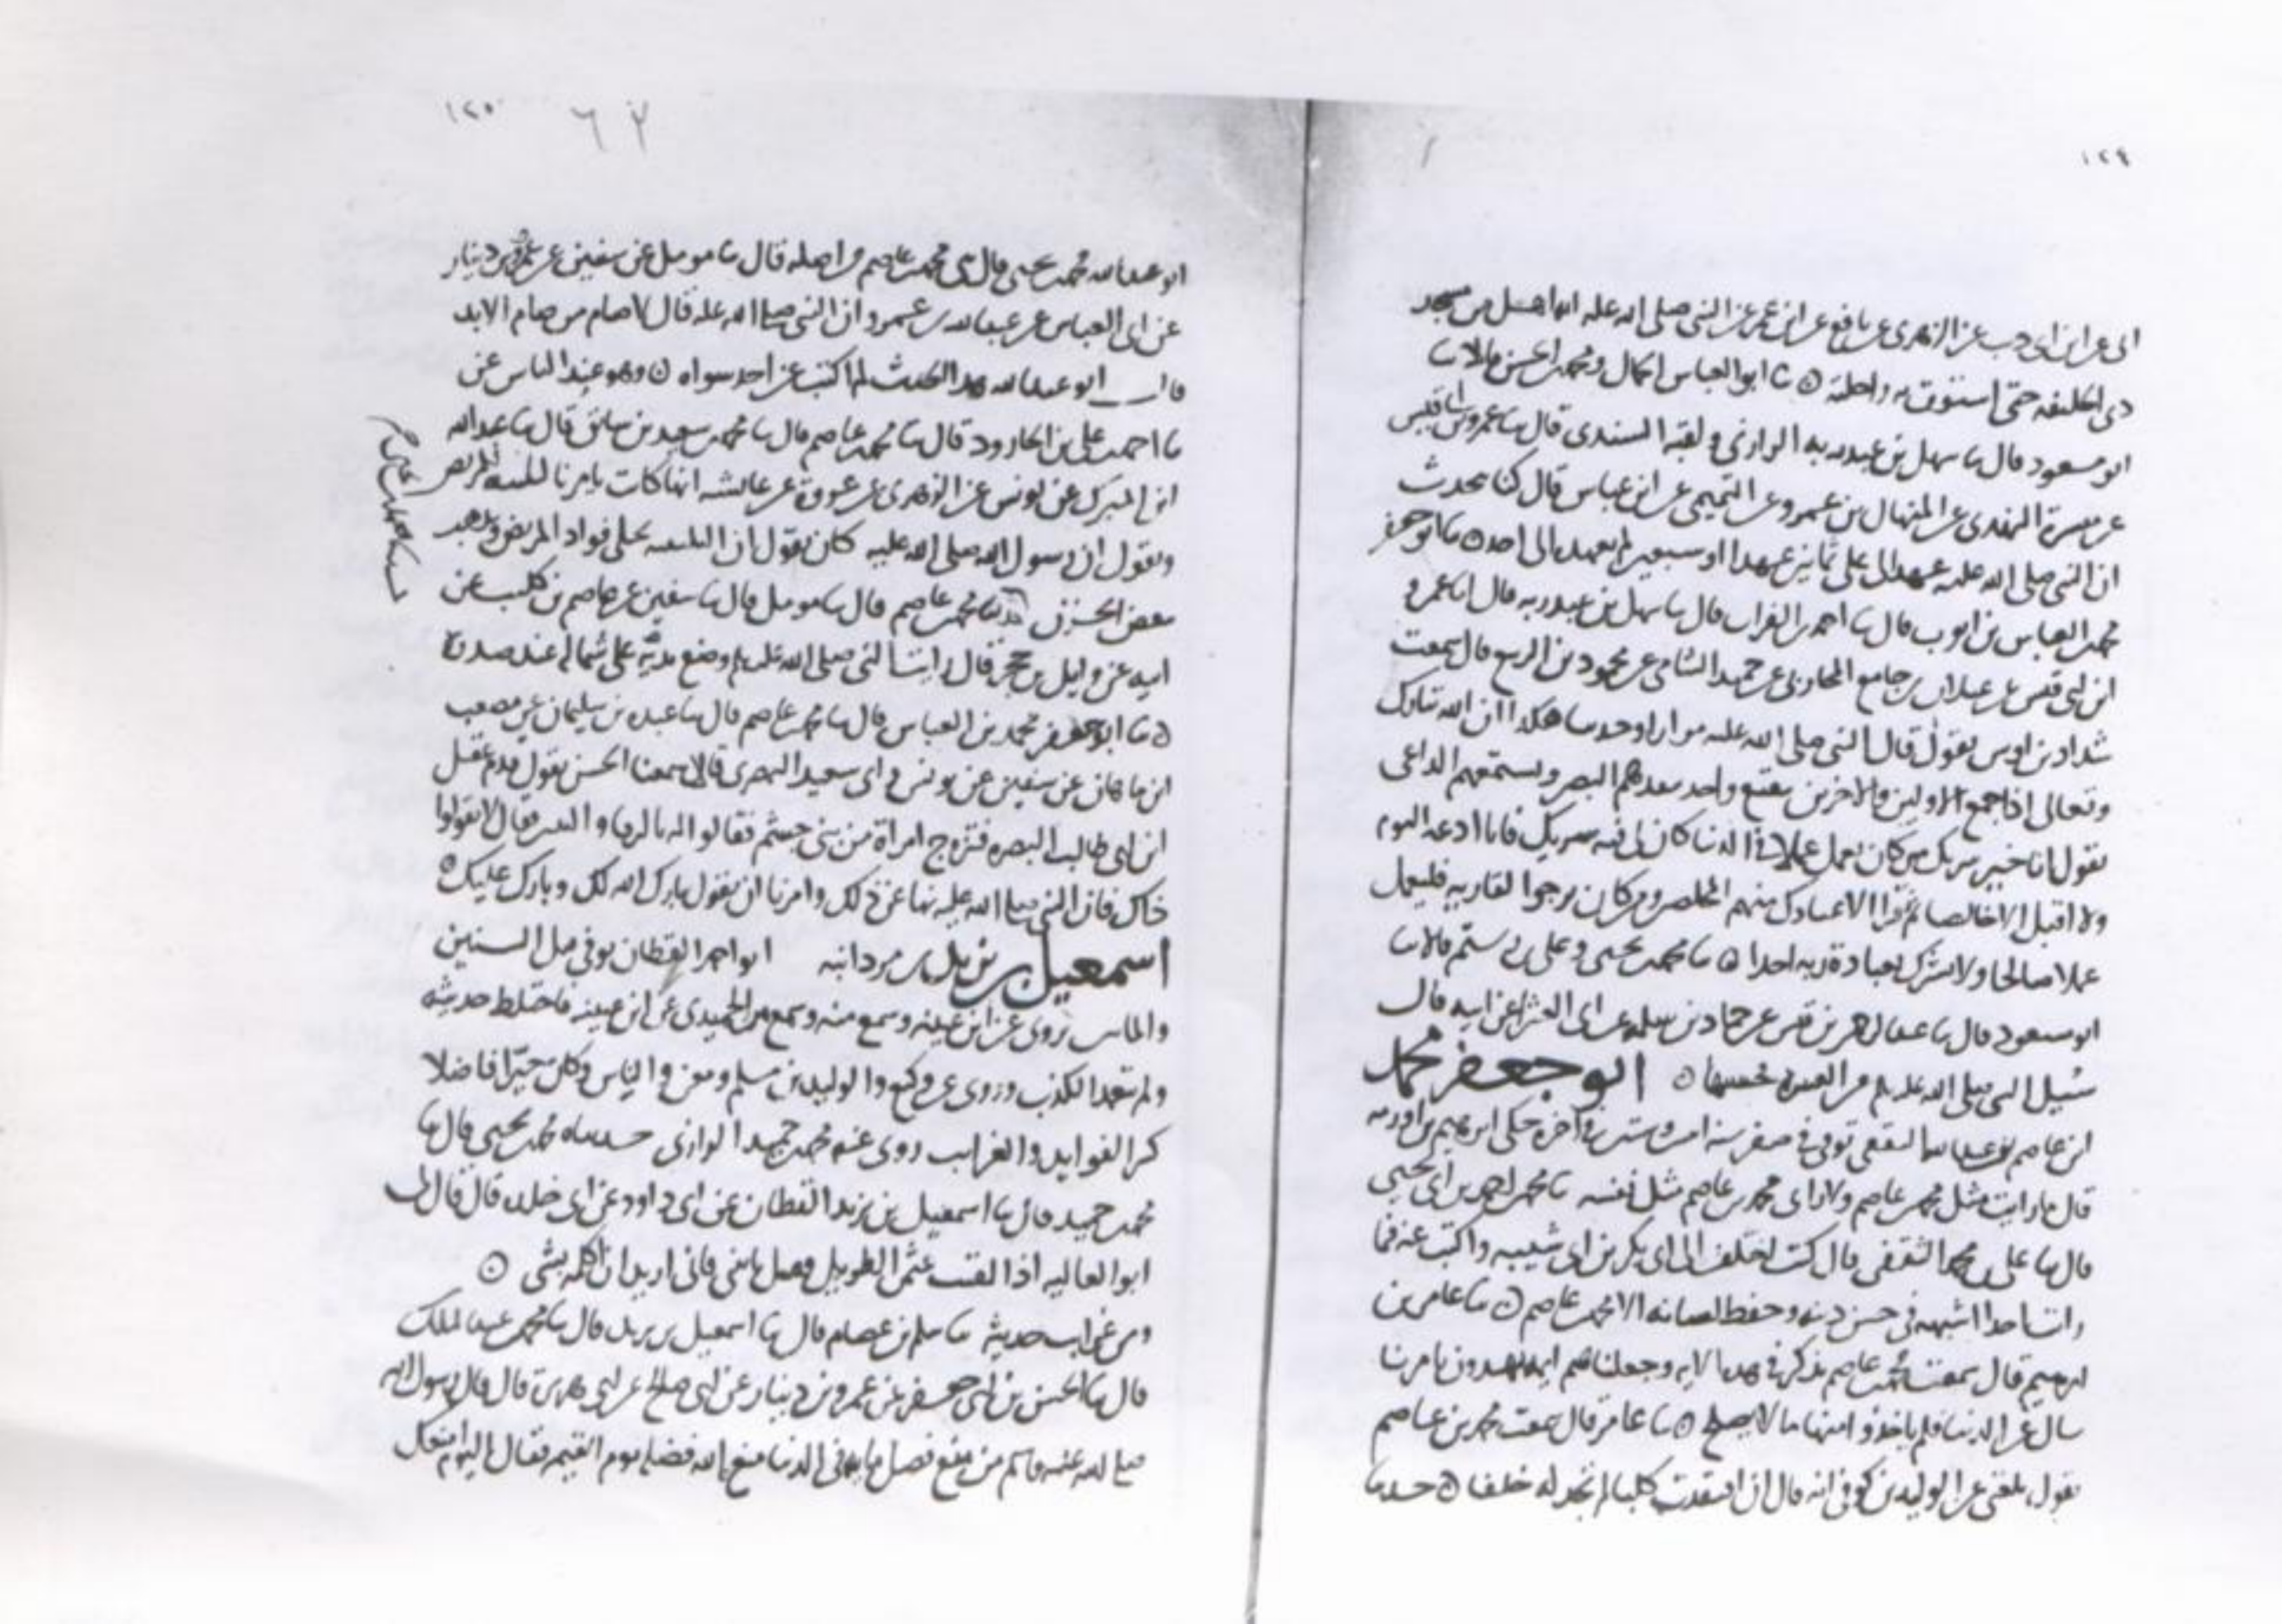 ١٢٩
ابى عن ابن ابى ذيب عن الزهرى عن نافع عن ابن عمر عن النبى صلى الله عليه انه اهل من مسجد
ذى الحليفه حتى استوت به راحلته ๐ ثنا ابو العباس الجمال ومحمد بن الحسن قالا ثنا
ابو مسعود قال ثنا سهل بن عبد ربه الرازى ولقبه السندى قال ثنا عمرو بن ابى قيس
عن النهدى عن المنهال بن عمرو عن التميمى عن ابن عباس قال كنا نحدث
ان النبى صلى الله عليه عهد الى على ثمانين عهدا او سبعين لم يعهد الى احد ๐ ثنا ابو جعفر
محمد بن العباس بن ايوب قال ثنا احمد بن الفرات قال ثنا سهل بن عبد ربه قال انا عمرو
ابن ابى قيس عن غيلان بن جامع المحاربى عن حميد الشامى عن محمود بن الربيع قال سمعت
شداد بن اوس يقول قال النبى صلى الله عليه مرارا وحدثنا هكذا ان الله تبارك
وتعالى اذا جمع الاولين والاخرين ببقيع واحد ينفدهم البصر ويسمعهم الداعى
يقول انا خير شريك من كان يعمل عملا فى الدنيا كان لى فيه شريك فانا ادعه اليوم
ولا اقبل الا خالصا ثم قرا الا عبادك منهم المخلصين ومن كان يرجوا لقا ربه فليعمل
عملا صالحا ولا يشرك بعبادة ربه احدا ๐ ثنا محمد بن يحيى وعلى بن رستم قالا ثنا
ابو مسعود قال ثنا عبد الرحمن بن قيس عن حماد بن سلمه عن ابى العشرا عن ابيه قال
سئل النبى صلى الله عليه وسلم عن العتيره فحسنها ๐ ابو جعفر محمد
ابن عاصم بن عبد الله الثقفى توفى فى صفر سنه اثنين وستين حكى ابرهيم بن اورمه
قال ما رايت مثل محمد بن عاصم ولا راى محمد بن عاصم مثل نفسه ثنا محمد بن احمد بن ابى يحيى
قال ثنا على بن محمد الثقفى قال كنت اختلف الى ابى بكر بن ابى شيبه واكتب عنه فما
رايت احدا اشبهه فى حسن دينه وحفظ لسانه الا محمد بن عاصم ๐ ثنا عامر بن
ابرهيم قال سمعت محمد بن عاصم يذكر فى هذه الايه وجعلناهم ايمه يهدون بامرنا
سال عن الدنيا فلم ياخذوا منها ما لا يصلح ๐ ثنا عامر قال سمعت محمد بن عاصم
يقول بلغنى عن الوليد بن كوفى انه قال ان افتقدت كلبا لم تجد له خلفا ๐ حدثنا
١٢٥ ٦٧
ابو عبد الله محمد بن يحيى قال ثنى محمد بن عاصم من اصله قال ثنا مومل عن سفين عن عمرو بن دينار
عن ابى العباس عن عبد الله بن عمرو ان النبى صلى الله عليه قال لا صام من صام الابد
قال ابو عبد الله هذا الحديث لم اكتب عن احد سواه ๐ وهو عند الناس عن
ثنا احمد بن على بن الجارود قال ثنا محمد بن عاصم قال ثنا محمد بن سعيد بن سابق قال ثنا عبد الله
ابن المبرك عن يونس عن الزهرى عن عروة عن عايشه انها كانت تامرنا للمريض
وتقول ان رسول الله صلى الله عليه كان يقول ان التلبينه تجلى فواد المريض وتذهب
بعض الحزن حدثنا محمد بن عاصم قال ثنا مومل قال ثنا سفين عن عاصم بن كليب عن
ابيه عن وايل بن حجر قال رايت النبى صلى الله عليه وسلم وضع يمينه على شماله عند صدره
๐ ثنا ابو جعفر محمد بن العباس قال ثنا محمد بن عاصم قال ثنا عبده بن سليمان عن مصعب
ابن ماهان عن سفين عن يونس وابى سعيد البصرى قالا سمعنا الحسن يقول قدم عقيل
ابن ابى طالب البصره فتزوج امراة من بنى جشم فقالوا له بالرفا والبنين فقال لا تقولوا
ذاك فان النبى صلى الله عليه نهانا عن ذلك وامرنا ان نقول بارك الله لك وبارك عليك ๐
اسمعيل بن يزيد بن مردانبه ابو احمد القطان توفى قبل الستين
والماتين يروى عن ابن عيينه وسمع منه وسمع من الحميدى عن ابن عيينه فاختلط حديثه
ولم يتعمد الكذب وروى عن وكيع والوليد بن مسلم ومعن والناس وكان خيرا فاضلا
كثير الفوايد والغرايب روى عنه محمد بن حميد الرازى حدثناه محمد بن يحيى قال ثنا
محمد بن حميد قال ثنا اسمعيل بن يزيد القطان عن ابى داود عن ابى خلده قال قال لى
ابو العاليه اذا لقيت عثمن الطويل فقل ياتينى فانى اريد ان اكلمه بشى ๐
ومن غرايب حديثه ثنا سلم بن عصام قال ثنا اسمعيل بن يزيد قال ثنا محمد بن عبد الملك
قال ثنا الحسن بن ابى جعفر عن عمرو بن دينار عن ابى صالح عن ابى هريرة قال قال رسول الله
صلى الله عليه وسلم من منع فضل ما فى الدنيا منعه الله فضله يوم القيمه فقال اليوم